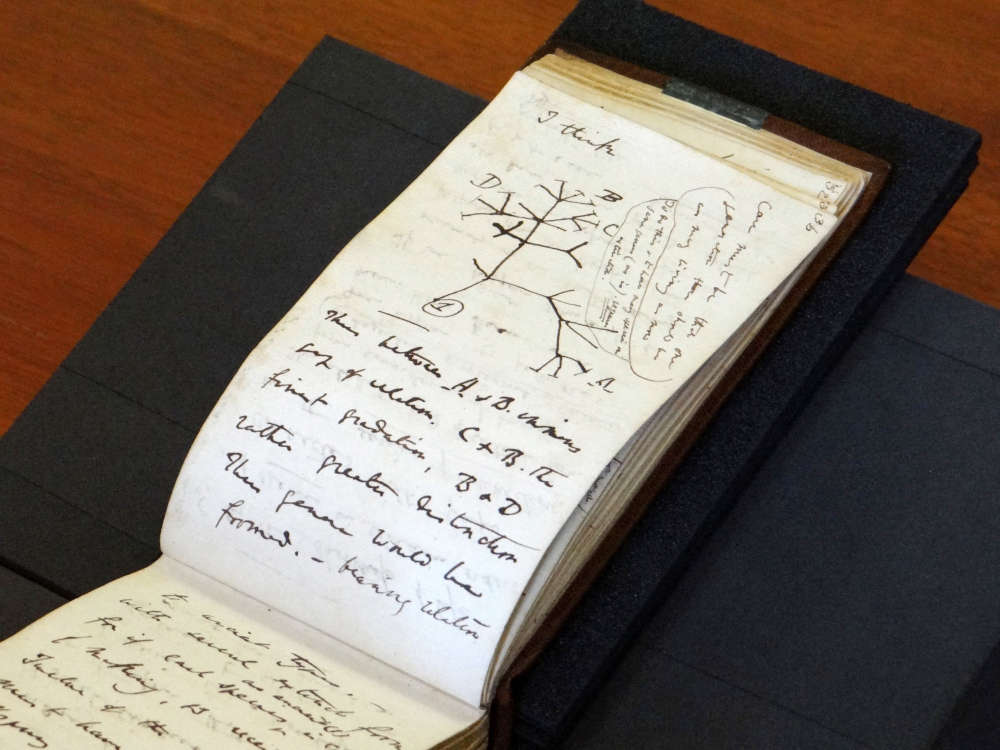 I think
B
D
C
1
A
Case must be
that one generation then should be
as many living as now
To do this & to have many species in
same genus (as is) requires
extinction
Thus between A. & B. immens
gap of relation. C & B. the
finest gradation, B & D
rather greater distinction
Thus genera would be
formed. — bearing relation
to ancient types. —
with several extinct forms
for if each species
is
Twelve of the